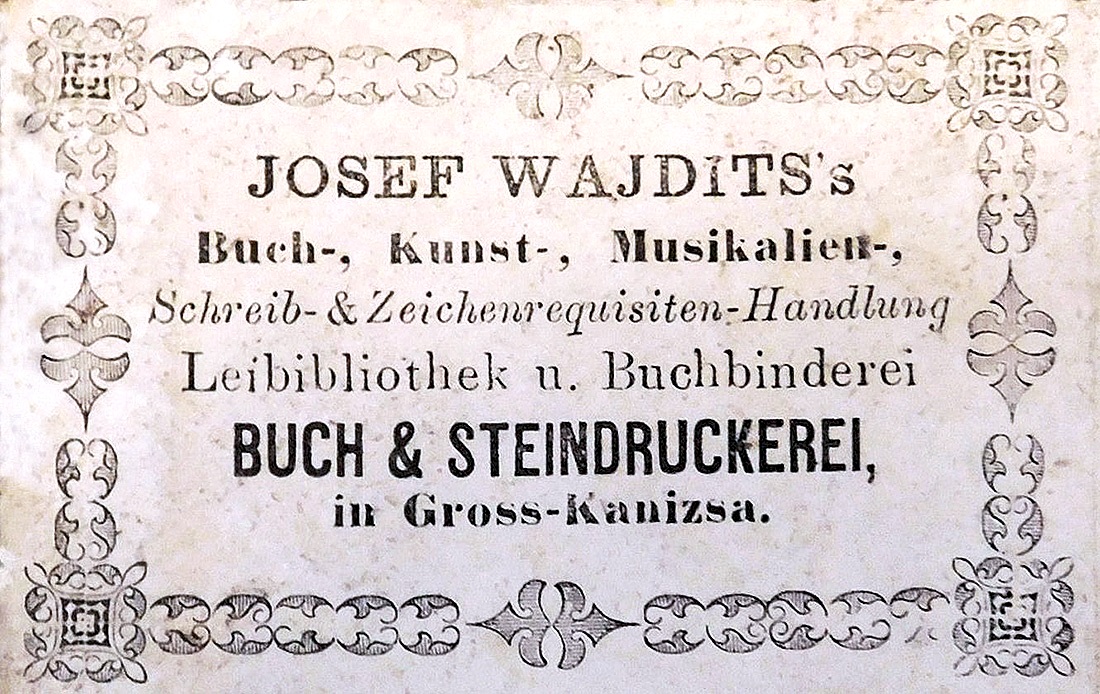 JOSEF WAJDITS's
Buch-, Kunst-, Musikalien-,
Schreib- & Zeichenrequisiten-Handlung
Leibibliothek u. Buchbinderei
BUCH & STEINDRUCKEREI,
in Gross-Kanizsa.